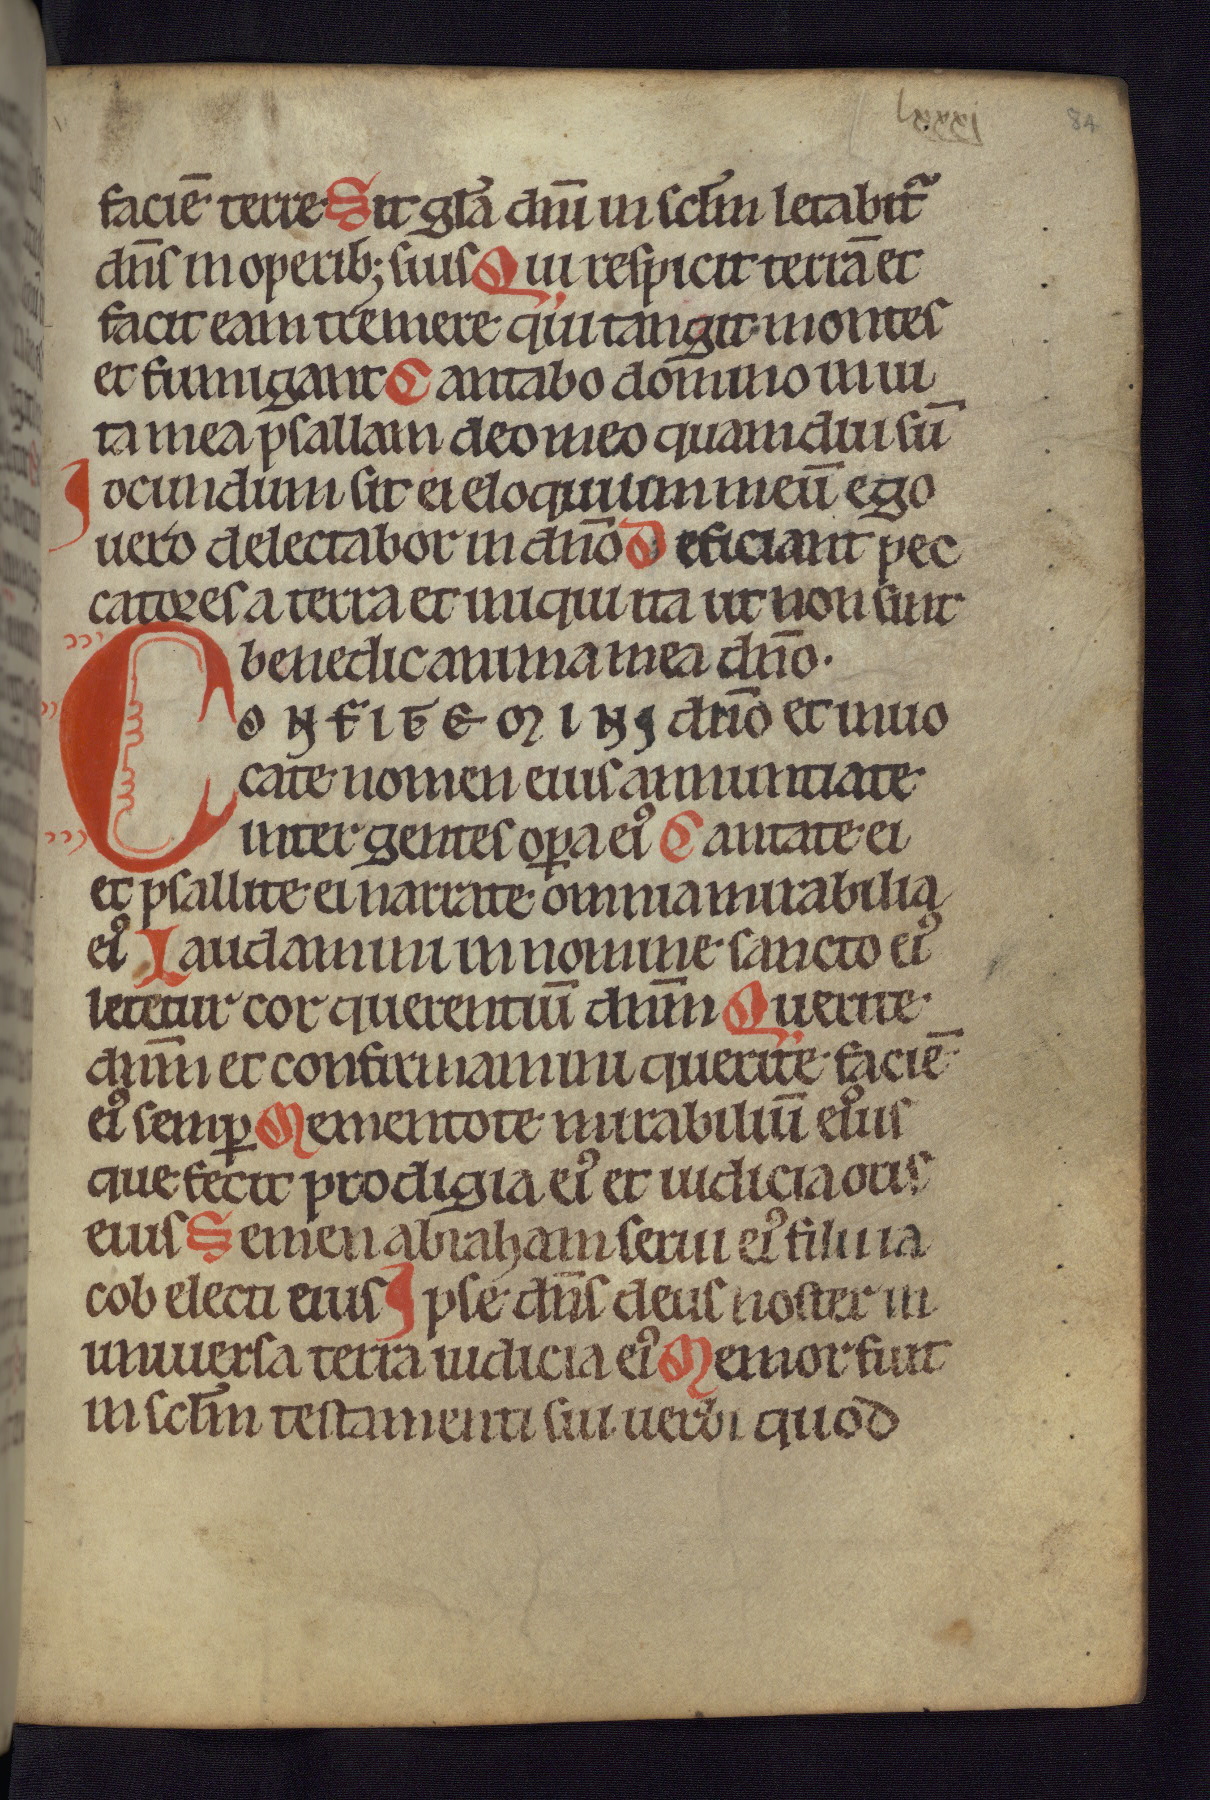 lxxxj 84
faciē terre Sit glā dn̄i in sc̄lm letabit᷑
dn̄s in operib; suis Qui respicit terrā et
facit eam tremere qui tangit montes
et fumigant Cantabo domino in ui
ta mea psallam deo meo quamdiu sū
Jocundum sit ei eloquium meū ego
uero delectabor in dn̄o Deficiant pec
catores a terra et iniqui ita ut non sint
benedic anima mea dn̄o.
CONFITEMINI dn̄o et inuo
cate nomen eius annuntiate
inter gentes oꝑa ei᷒ Cantate ei
et psallite ei narrate omnia mirabilia
ei᷒ Laudamini in nomine sancto ei᷒
letetur cor querentiū dn̄m Querite
dn̄m et confirmamini querite faciē
ei᷒ semꝑ Mementote mirabiliū eius
que fecit prodigia ei᷒ et iudicia oris
eius Semen abraham serui ei᷒ filii ia
cob electi eius Ipse dn̄s deus noster in
uniuersa terra iudicia ei᷒ Memor fuit
in sc̄lm testamenti sui uerbi quod